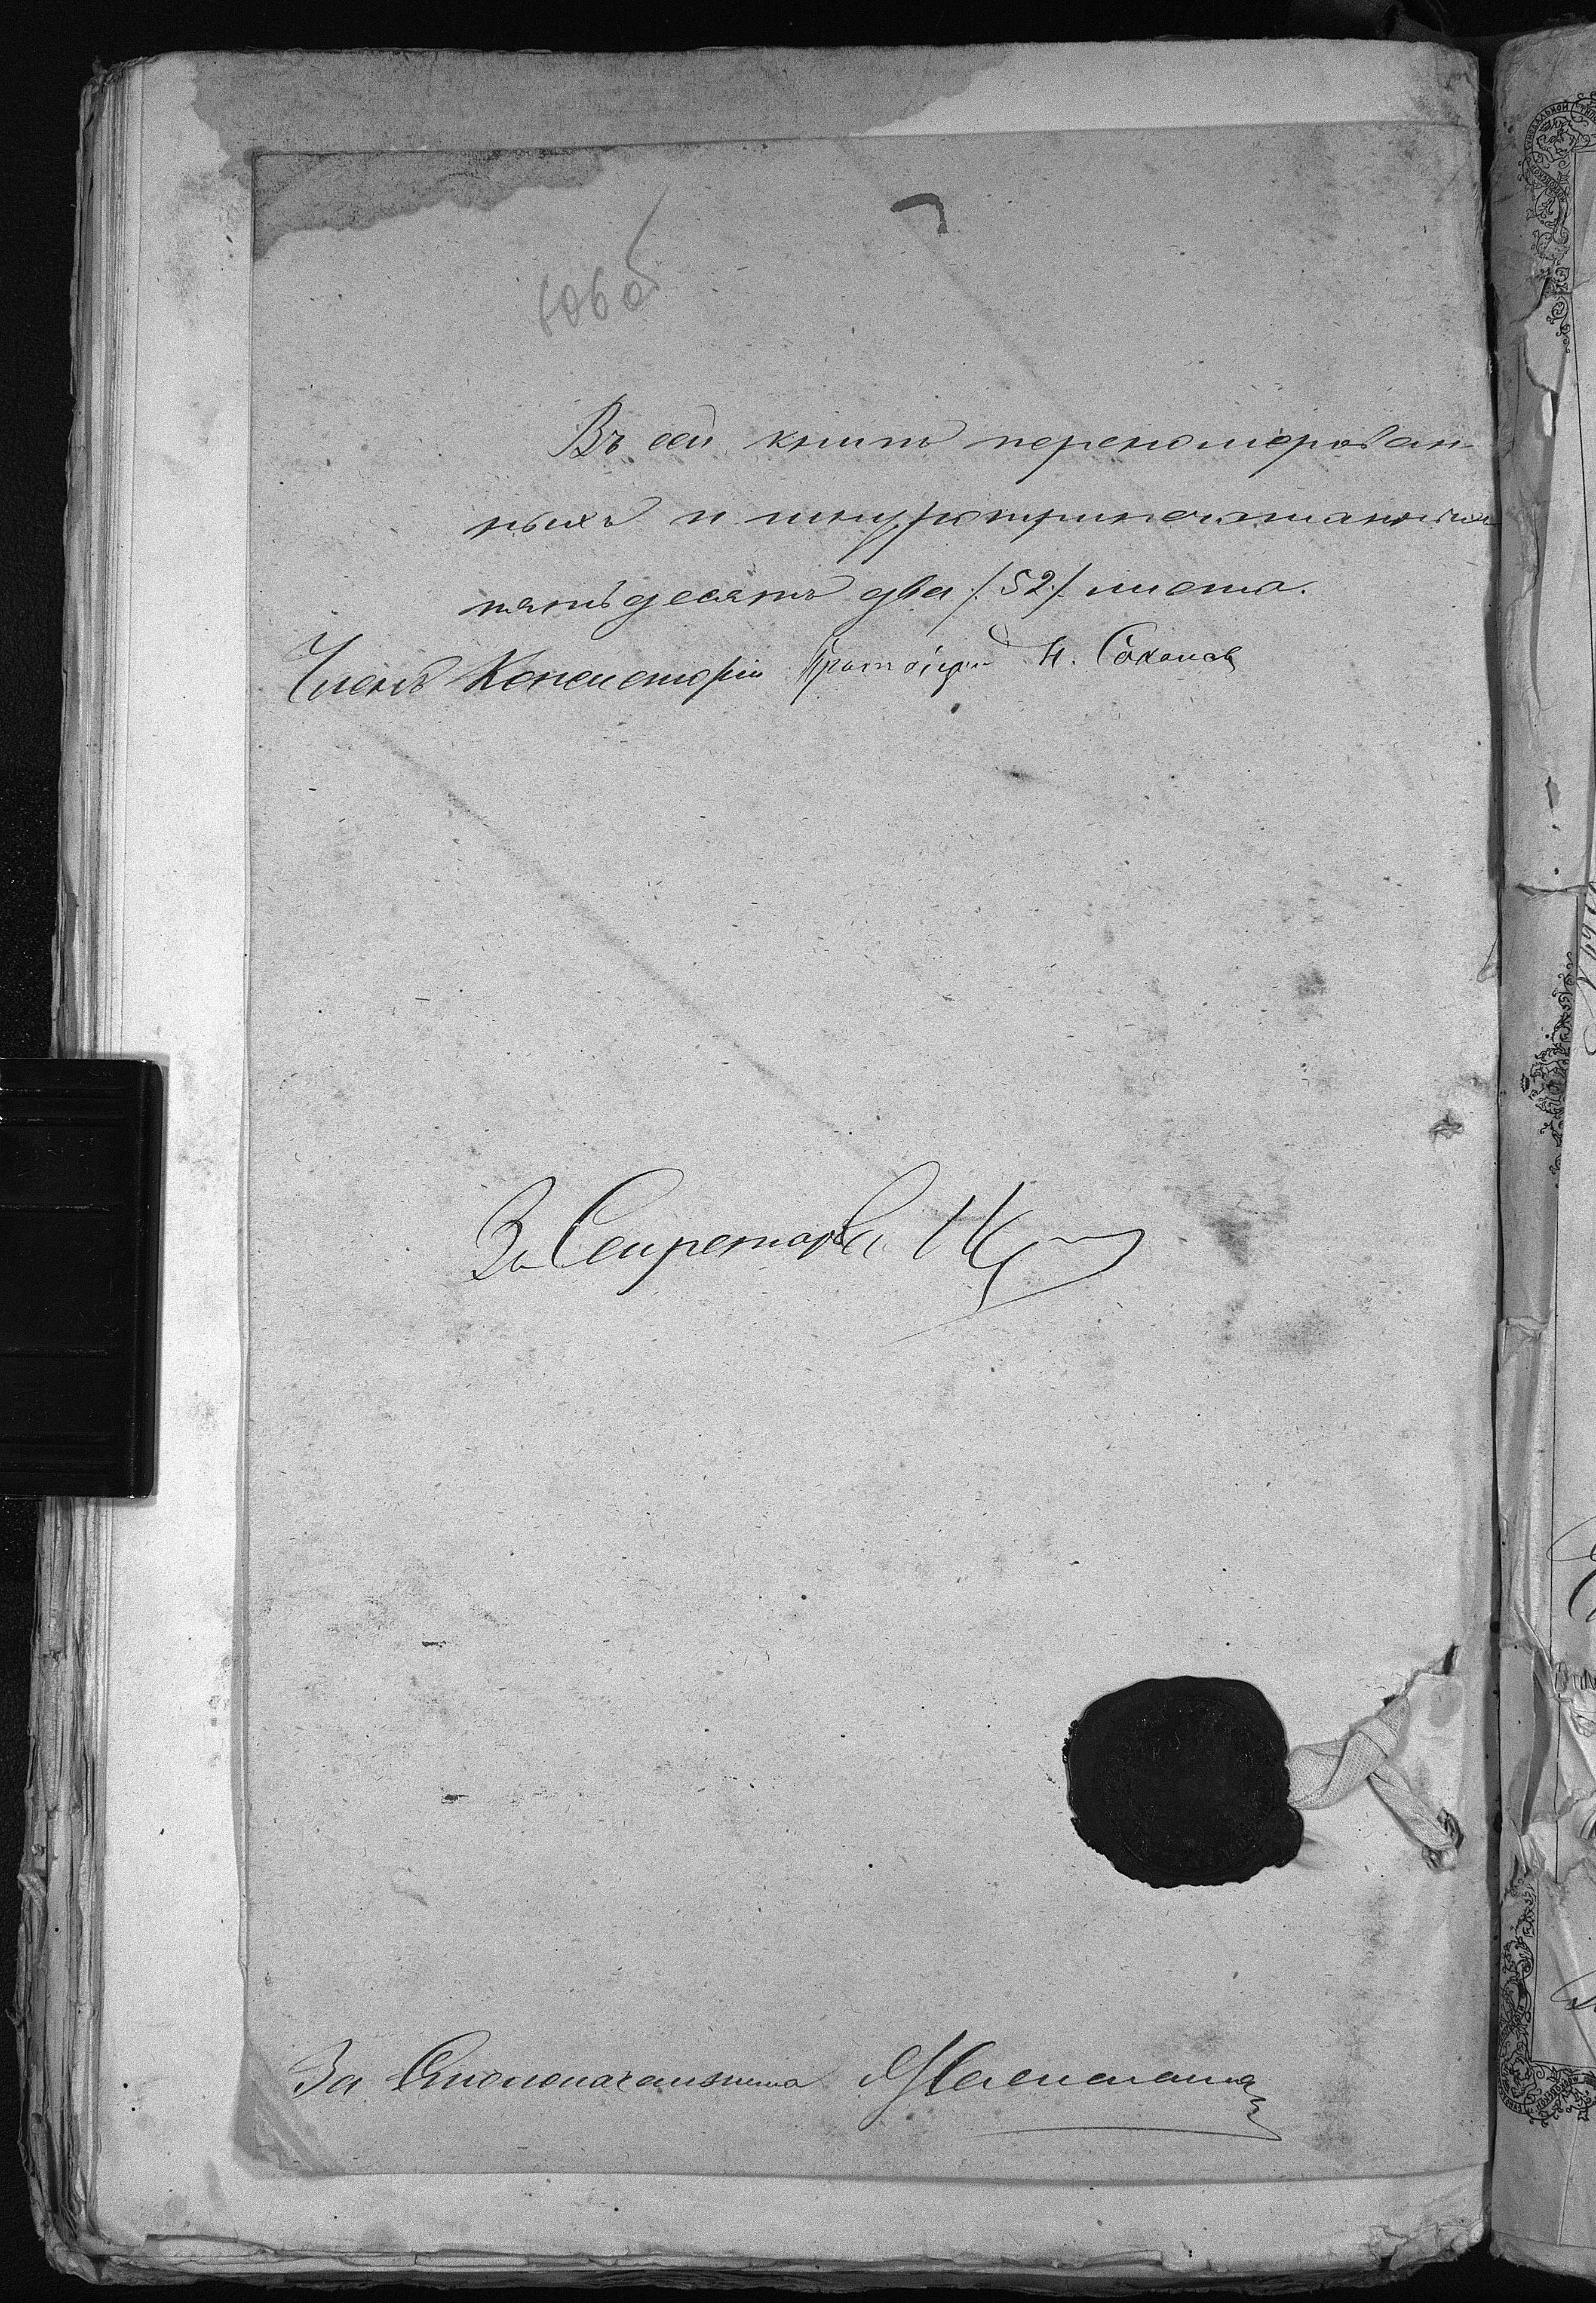 Въ сей книгѣ перенумерован-
ныхъ и шнуроприпечатанныхъ
пятьдесятъ два /:52:/ листа.
Членъ Консисторіи Протоіерей Н. Соколовъ
За Секретаря
За Столоначальника